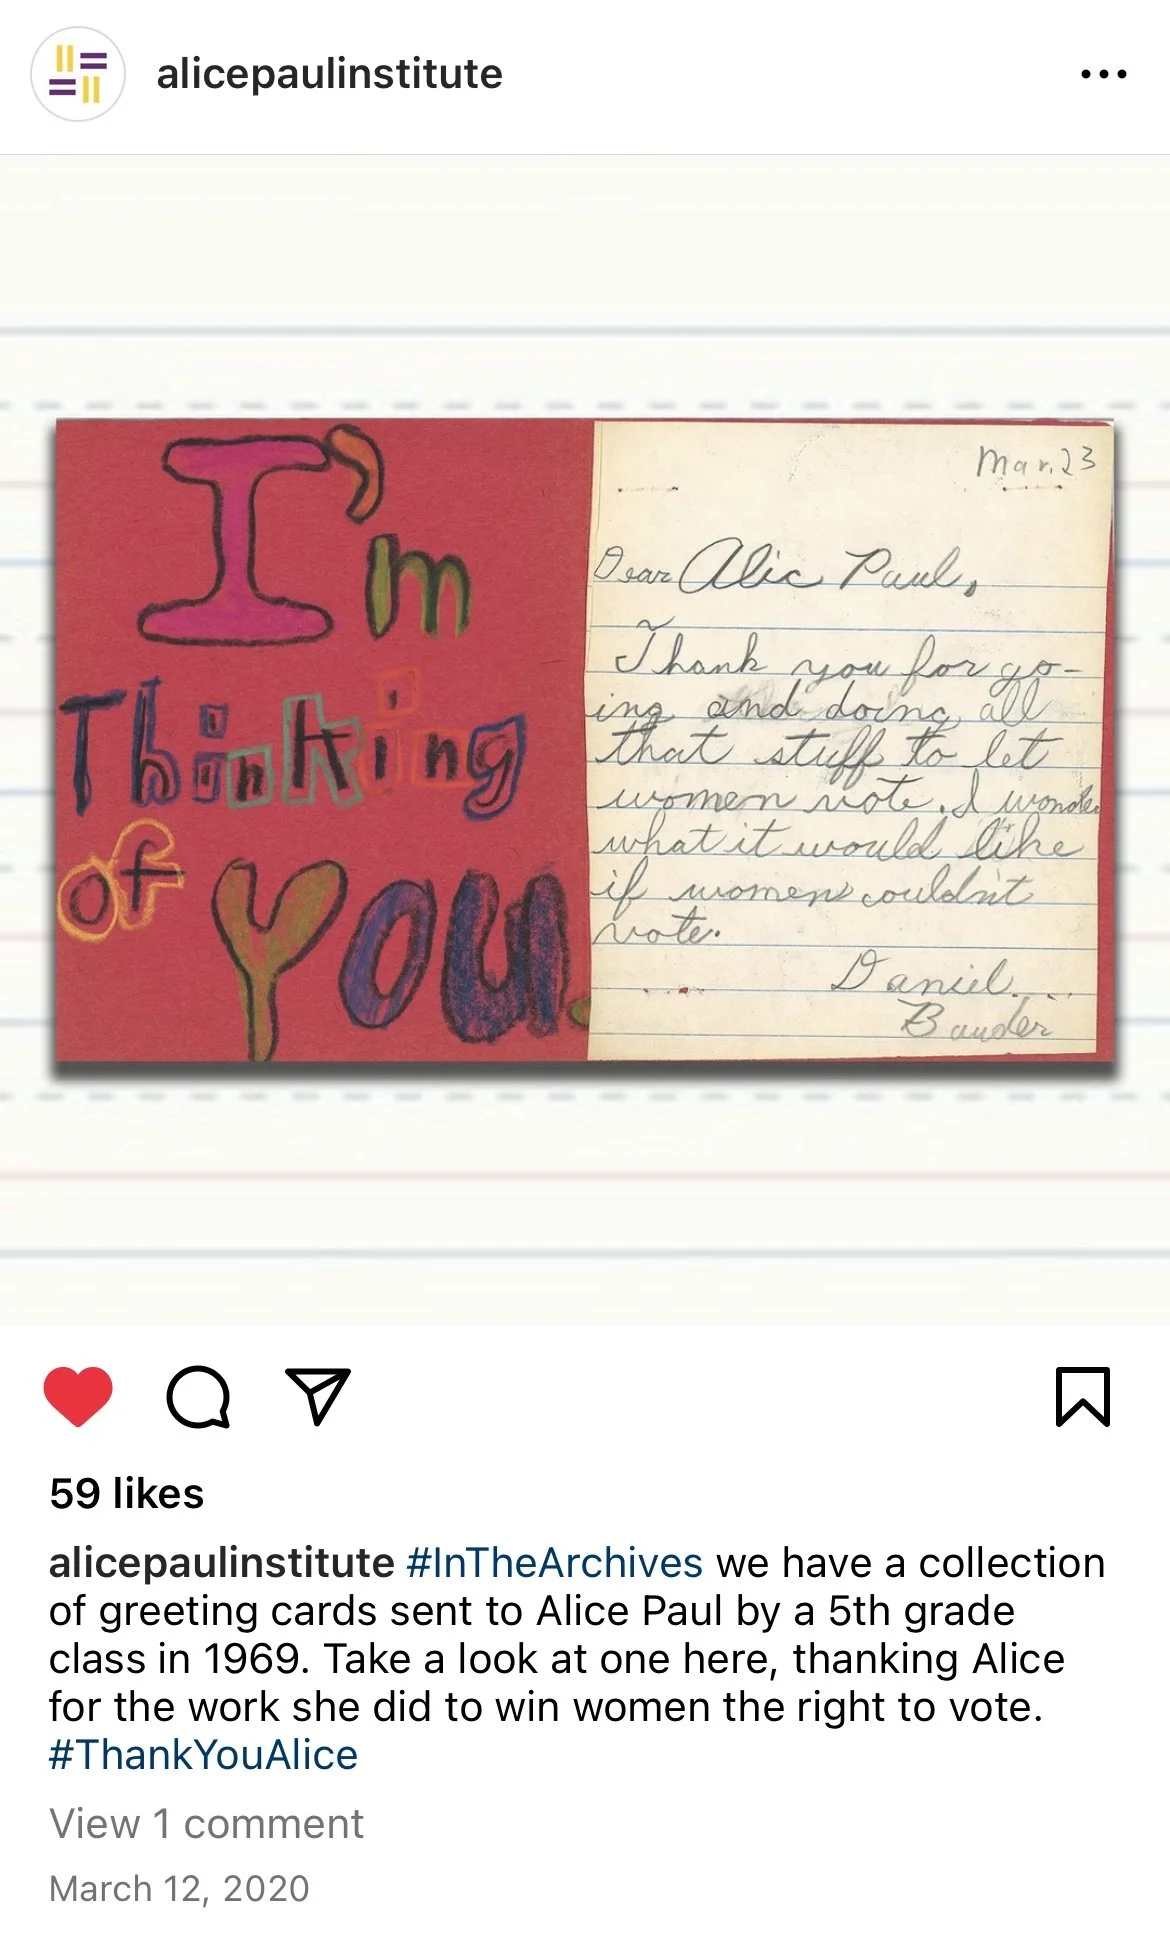 alicepaulinstitute
I'm
Thinking
of YOU.
Mar. 23
Dear Alic Paul,
Thank you for go-
ing and doing all
that stuff to let
women vote. I wonder
what it would like
if women couldn't
vote.
Daniel
Bauder
59 likes
alicepaulinstitute #InTheArchives we have a collection
of greeting cards sent to Alice Paul by a 5th grade
class in 1969. Take a look at one here, thanking Alice
for the work she did to win women the right to vote.
#ThankYouAlice
View 1 comment
March 12, 2020